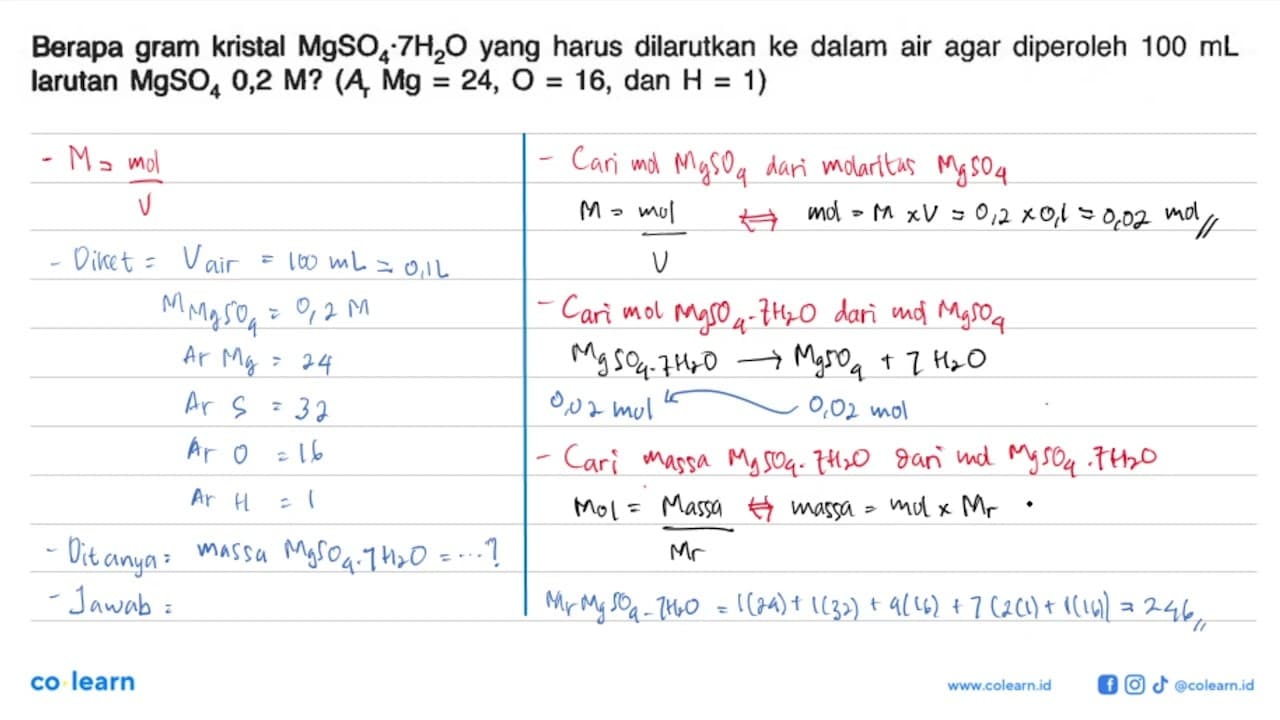 Berapa gram kristal MgSO₄·7H₂O yang harus dilarutkan ke dalam air agar diperoleh 100 mL
larutan MgSO₄ 0,2 M? (Aᵣ Mg = 24, O = 16, dan H = 1)
- M = mol
V
- Diket = V air = 100 mL = 0,1L
M MgSO₄ = 0,2 M
Ar Mg = 24
Ar S = 32
Ar O = 16
Ar H = 1
- Ditanya = massa MgSO₄.7H₂O = ...?
- Jawab =
- Cari mol MgSO₄ dari molaritas MgSO₄
M = mol ⇔ mol = M x V = 0,2 x 0,1 = 0,02 mol //
V
- Cari mol MgSO₄.7H₂O dari mol MgSO₄
MgSO₄.7H₂O → MgSO₄ + 7 H₂O
0,02 mol 0,02 mol
- Cari massa MgSO₄.7H₂O dari mol MgSO₄.7H₂O
Mol = Massa ⇔ massa = mol x Mr
Mr
Mr MgSO₄.7H₂O = 1(24) + 1(32) + 4(16) + 7(2(1) + 1(16)) = 246 //
co learn
www.colearn.id
@colearn.id